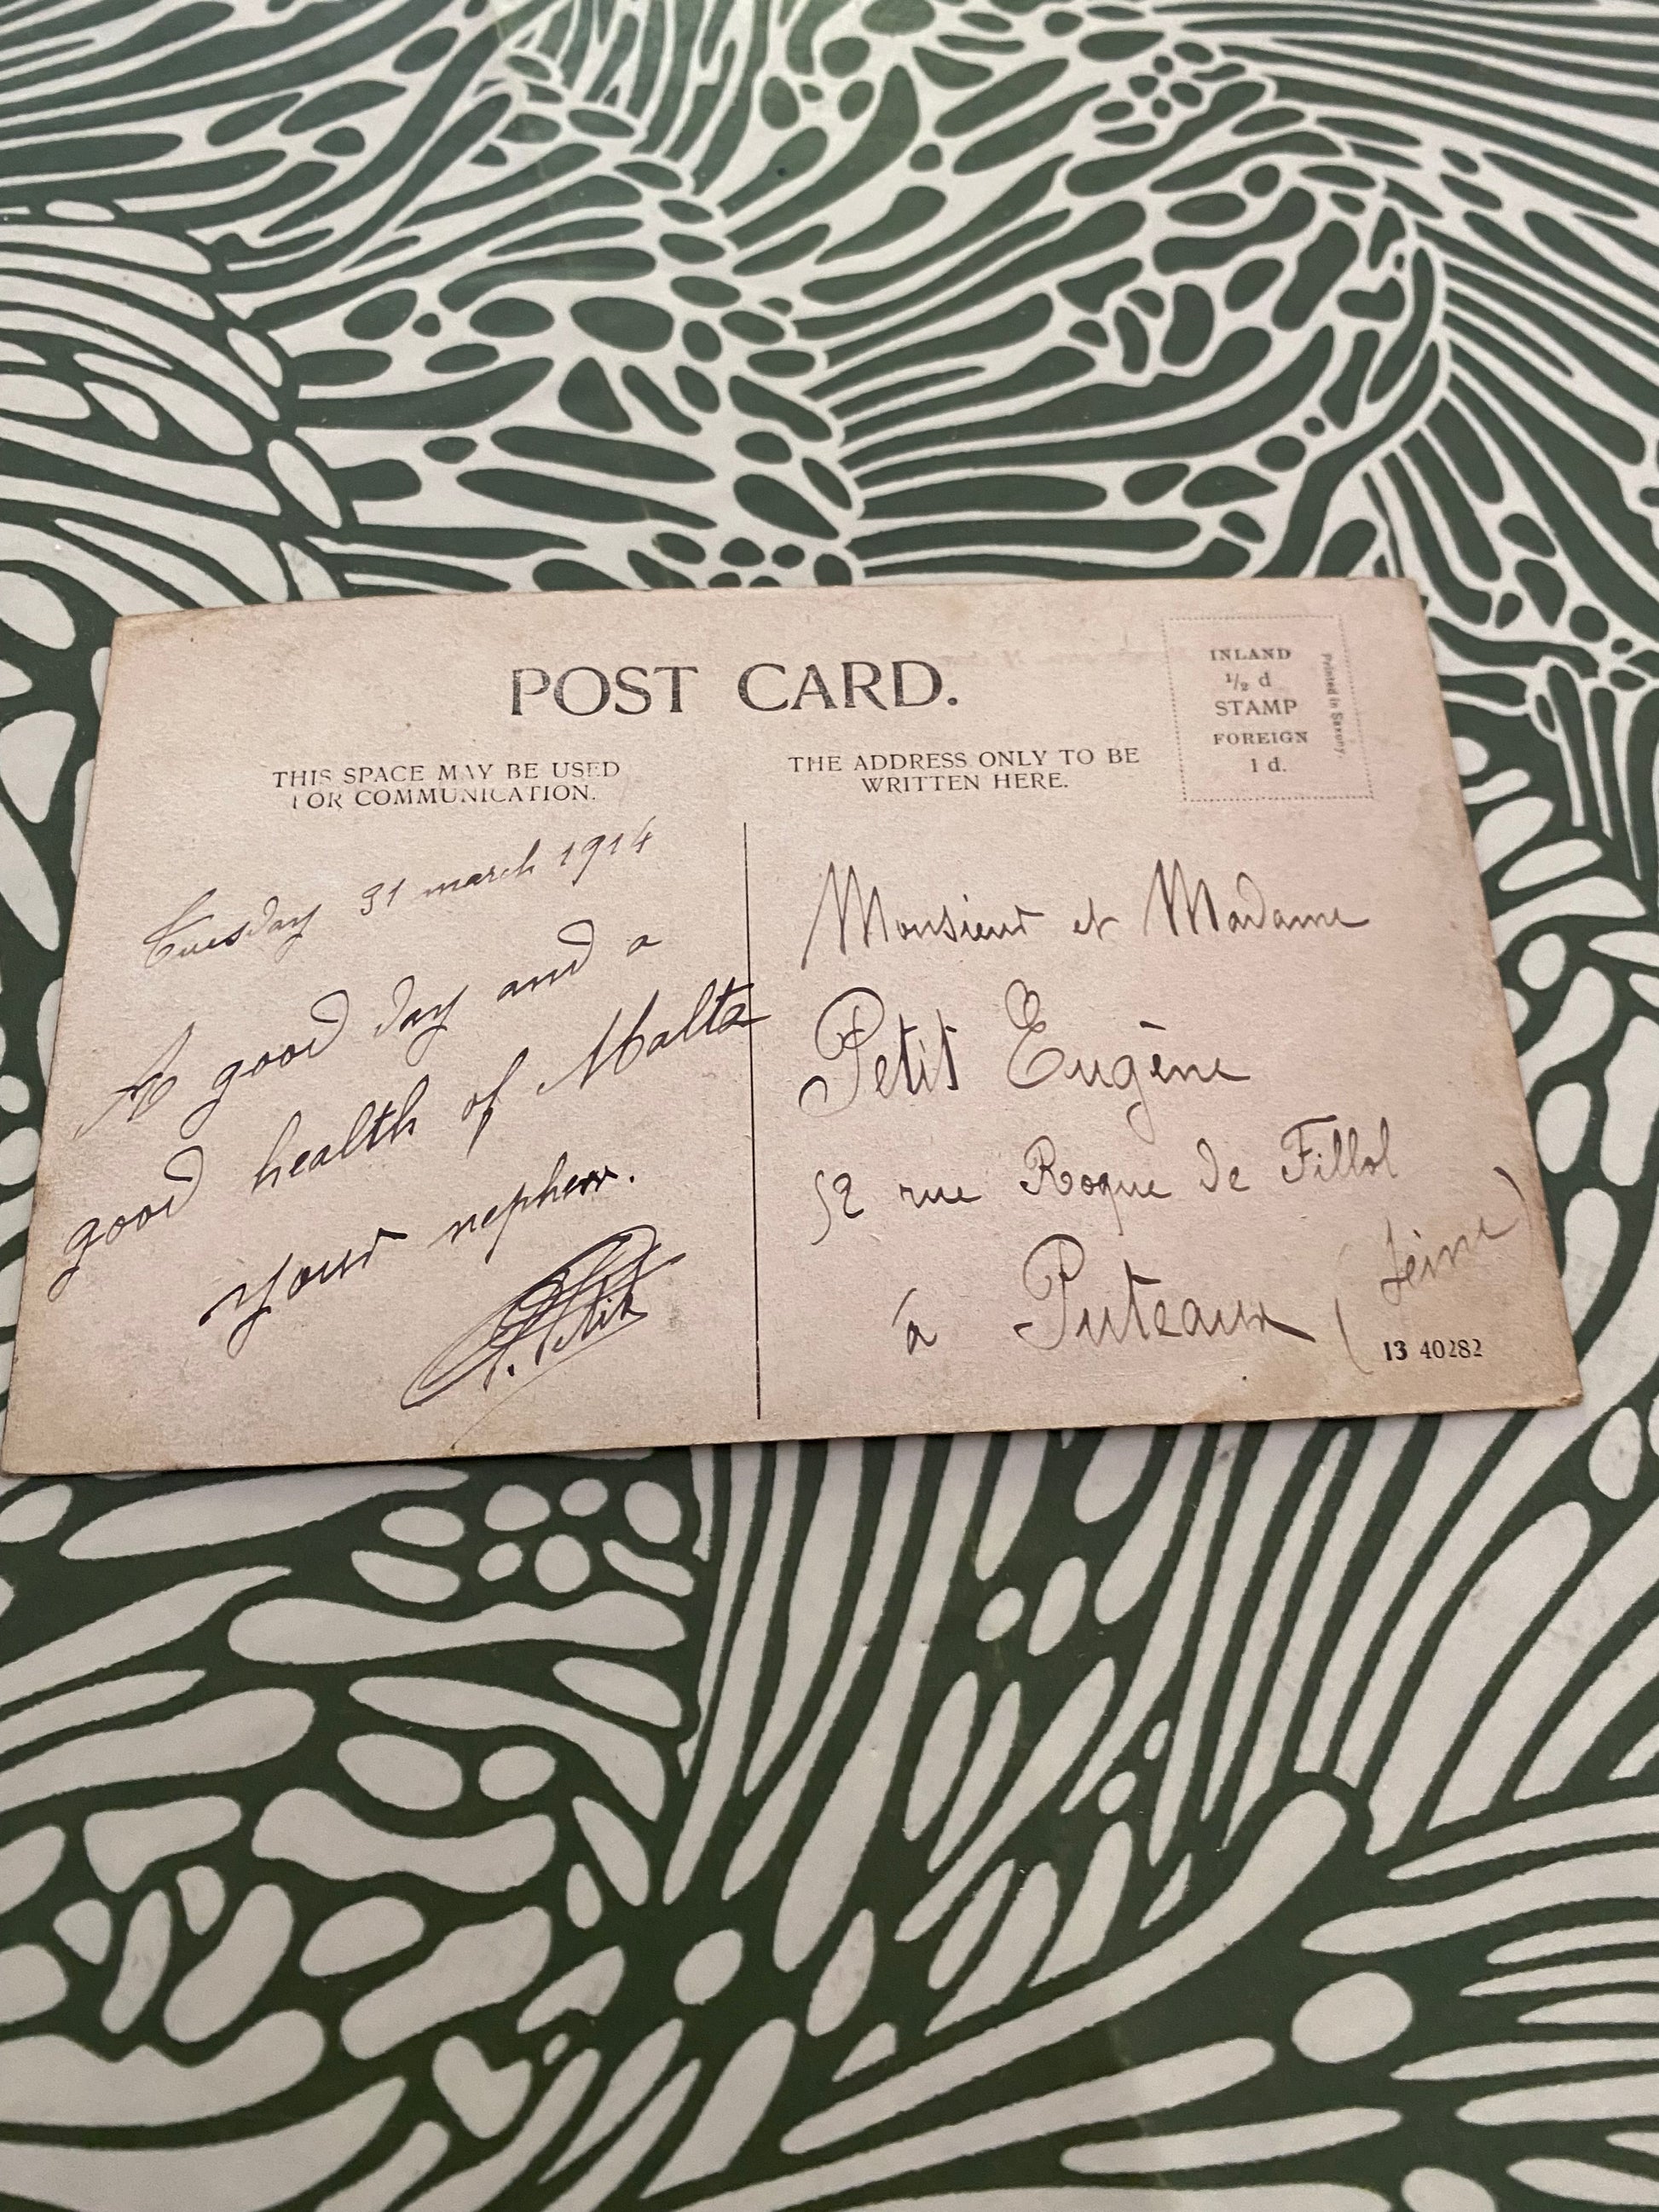 POST CARD.
THIS SPACE MAY BE USED
FOR COMMUNICATION.
THE ADDRESS ONLY TO BE
WRITTEN HERE.
INLAND
½ d
STAMP
FOREIGN
1 d.
Printed in Saxony.
Tuesday 31 march 1914
A good day and a
good health of Malta
your nephew.
P. Petit
Monsieur et Madame
Petit Eugène
52 rue Roque de Fillol
à Puteaux (Seine)
13 40282